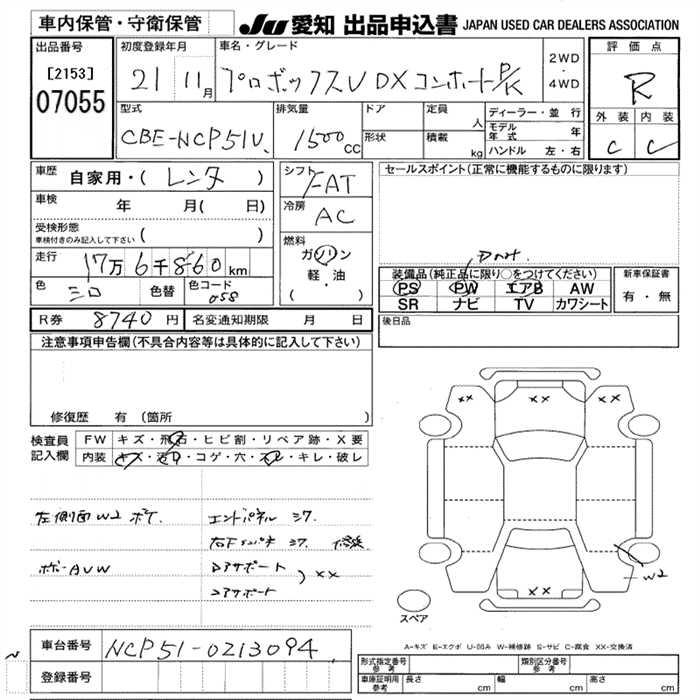 車内保管・守衛保管
JU 愛知 出品申込書 JAPAN USED CAR DEALERS ASSOCIATION
出品番号
[2153]
07055
初度登録年月
21 11月
車名・グレード
プロボックスV DX コンホート P/K
2WD
・
4WD
評価点
R
外装 内装
C C
型式
CBE-NCP51V
排気量
1500CC
ドア
形状
定員
人
積載
kg
ディーラー・並行
モデル年式 年
ハンドル 左・右
車歴
自家用・( レンタ )
車検
年 月( 日)
受検形態
車検付きのみ記入して下さい ( )
走行
17万6千860km
色
シロ
色替
色コード
058
シフト
FAT
冷房
AC
燃料
ガソリン
軽・油
( )
セールスポイント(正常に機能するものに限ります)
装備品(純正品に限り○をつけてください)
PS PW エアB AW
SR ナビ TV カワシート
新車保証書
有・無
R券 8740円
名変通知期限 月 日
後日品
注意事項申告欄(不具合内容等は具体的に記入して下さい)
修復歴 有(箇所 )
検査員
記入欄
FW キズ・飛石・ヒビ割・リペア跡・X要
内装 キズ・汚れ・コゲ・穴・スレ・キレ・破レ
左側面W2 ボT.
エンドパネル ミク.
ボデーAUW
Dアサポート
コアサポート
) XX
XX XX XX
XX
W2
スペア
A-キズ E-エクボ U-凹み W-補修跡 S-サビ C-腐食 XX-交換済
車台番号
NCP51-0213094
登録番号
形式指定番号
参考
類別区分番号
参考
車庫証明用
参考
長さ cm 幅 cm 高さ cm